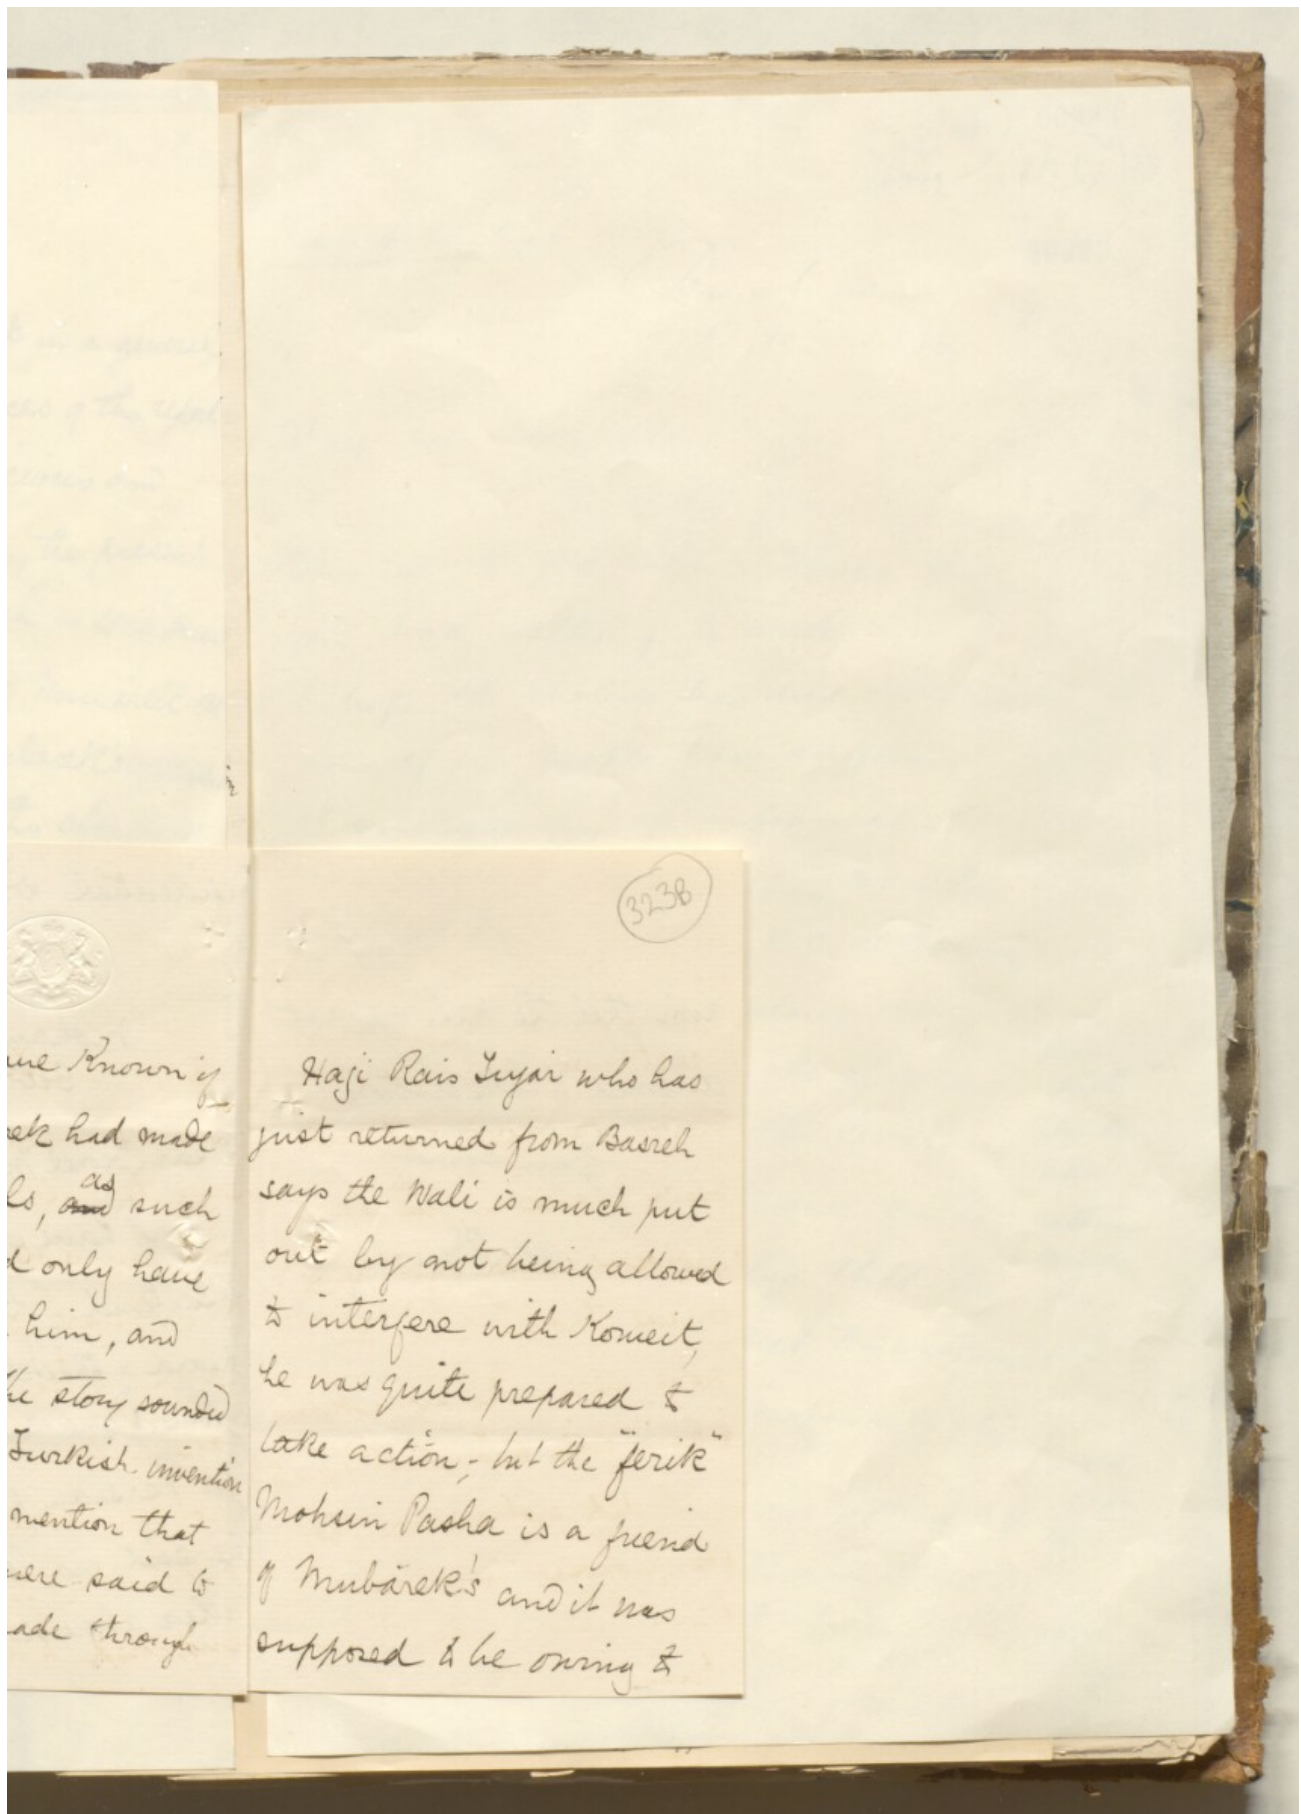 ue Known if
ek had made
ls, as such
d only have
him, and
he story sounded
Turkish invention
mention that
were said to
ade through
323B
Haji Rais Tujár who has
just returned from Basreh
says the Wali is much put
out by not being allowed
to interfere with Koweit,
he was quite prepared to
take action; but the "ferik"
Mohsin Pasha is a friend
of Mubárek's and it was
supposed to be owing to